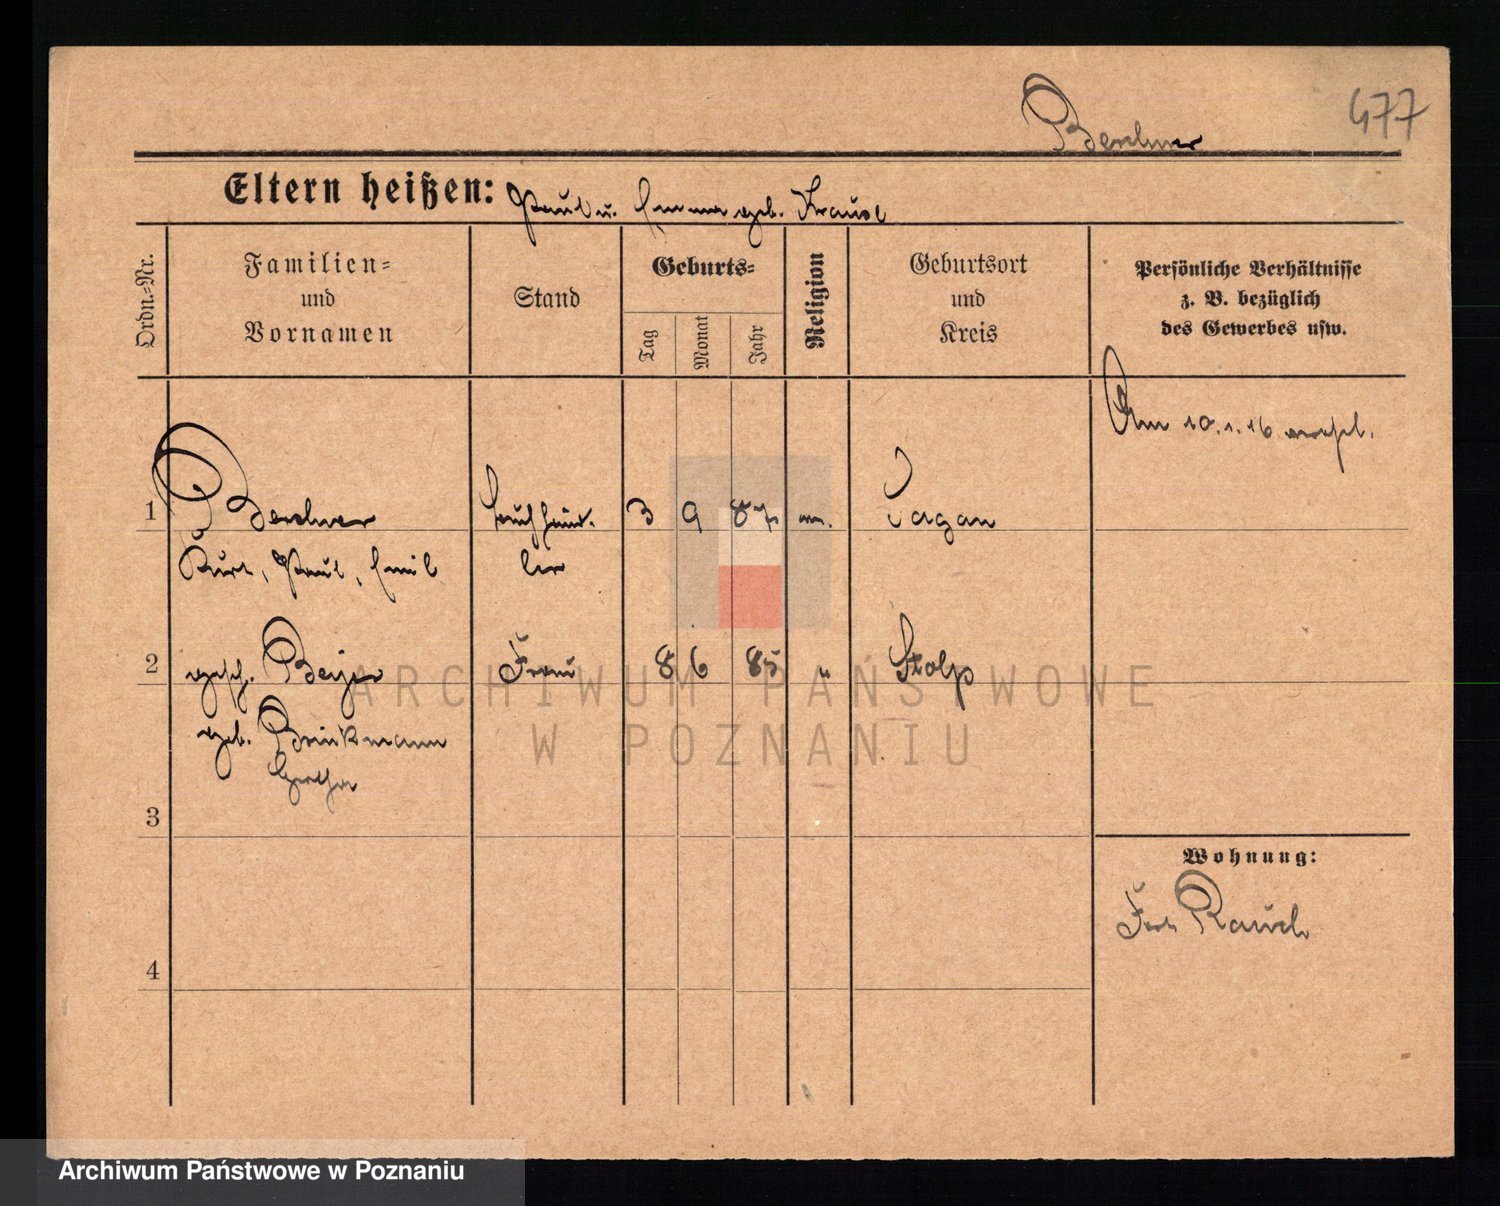 477
Berliner
Eltern heißen: Paul u. Emma geb. Krause
Ordn.=Nr.
Familien=
und
Vornamen
Stand
Geburts=
Tag
Monat
Jahr
Religion
Geburtsort
und
Kreis
Persönliche Verhältnisse
z. B. bezüglich
des Gewerbes usw.
Am 10.1.16
1 3 9 87 Sagan
Kurt, Paul, Emil ler
2 gesch. Beyer Frau 8 6 85 " Stolp
geb. Brinkmann
3
Wohnung:
Fort Rauch
4
ARCHIWUM PAŃSTWOWE
W POZNANIU
Archiwum Państwowe w Poznaniu